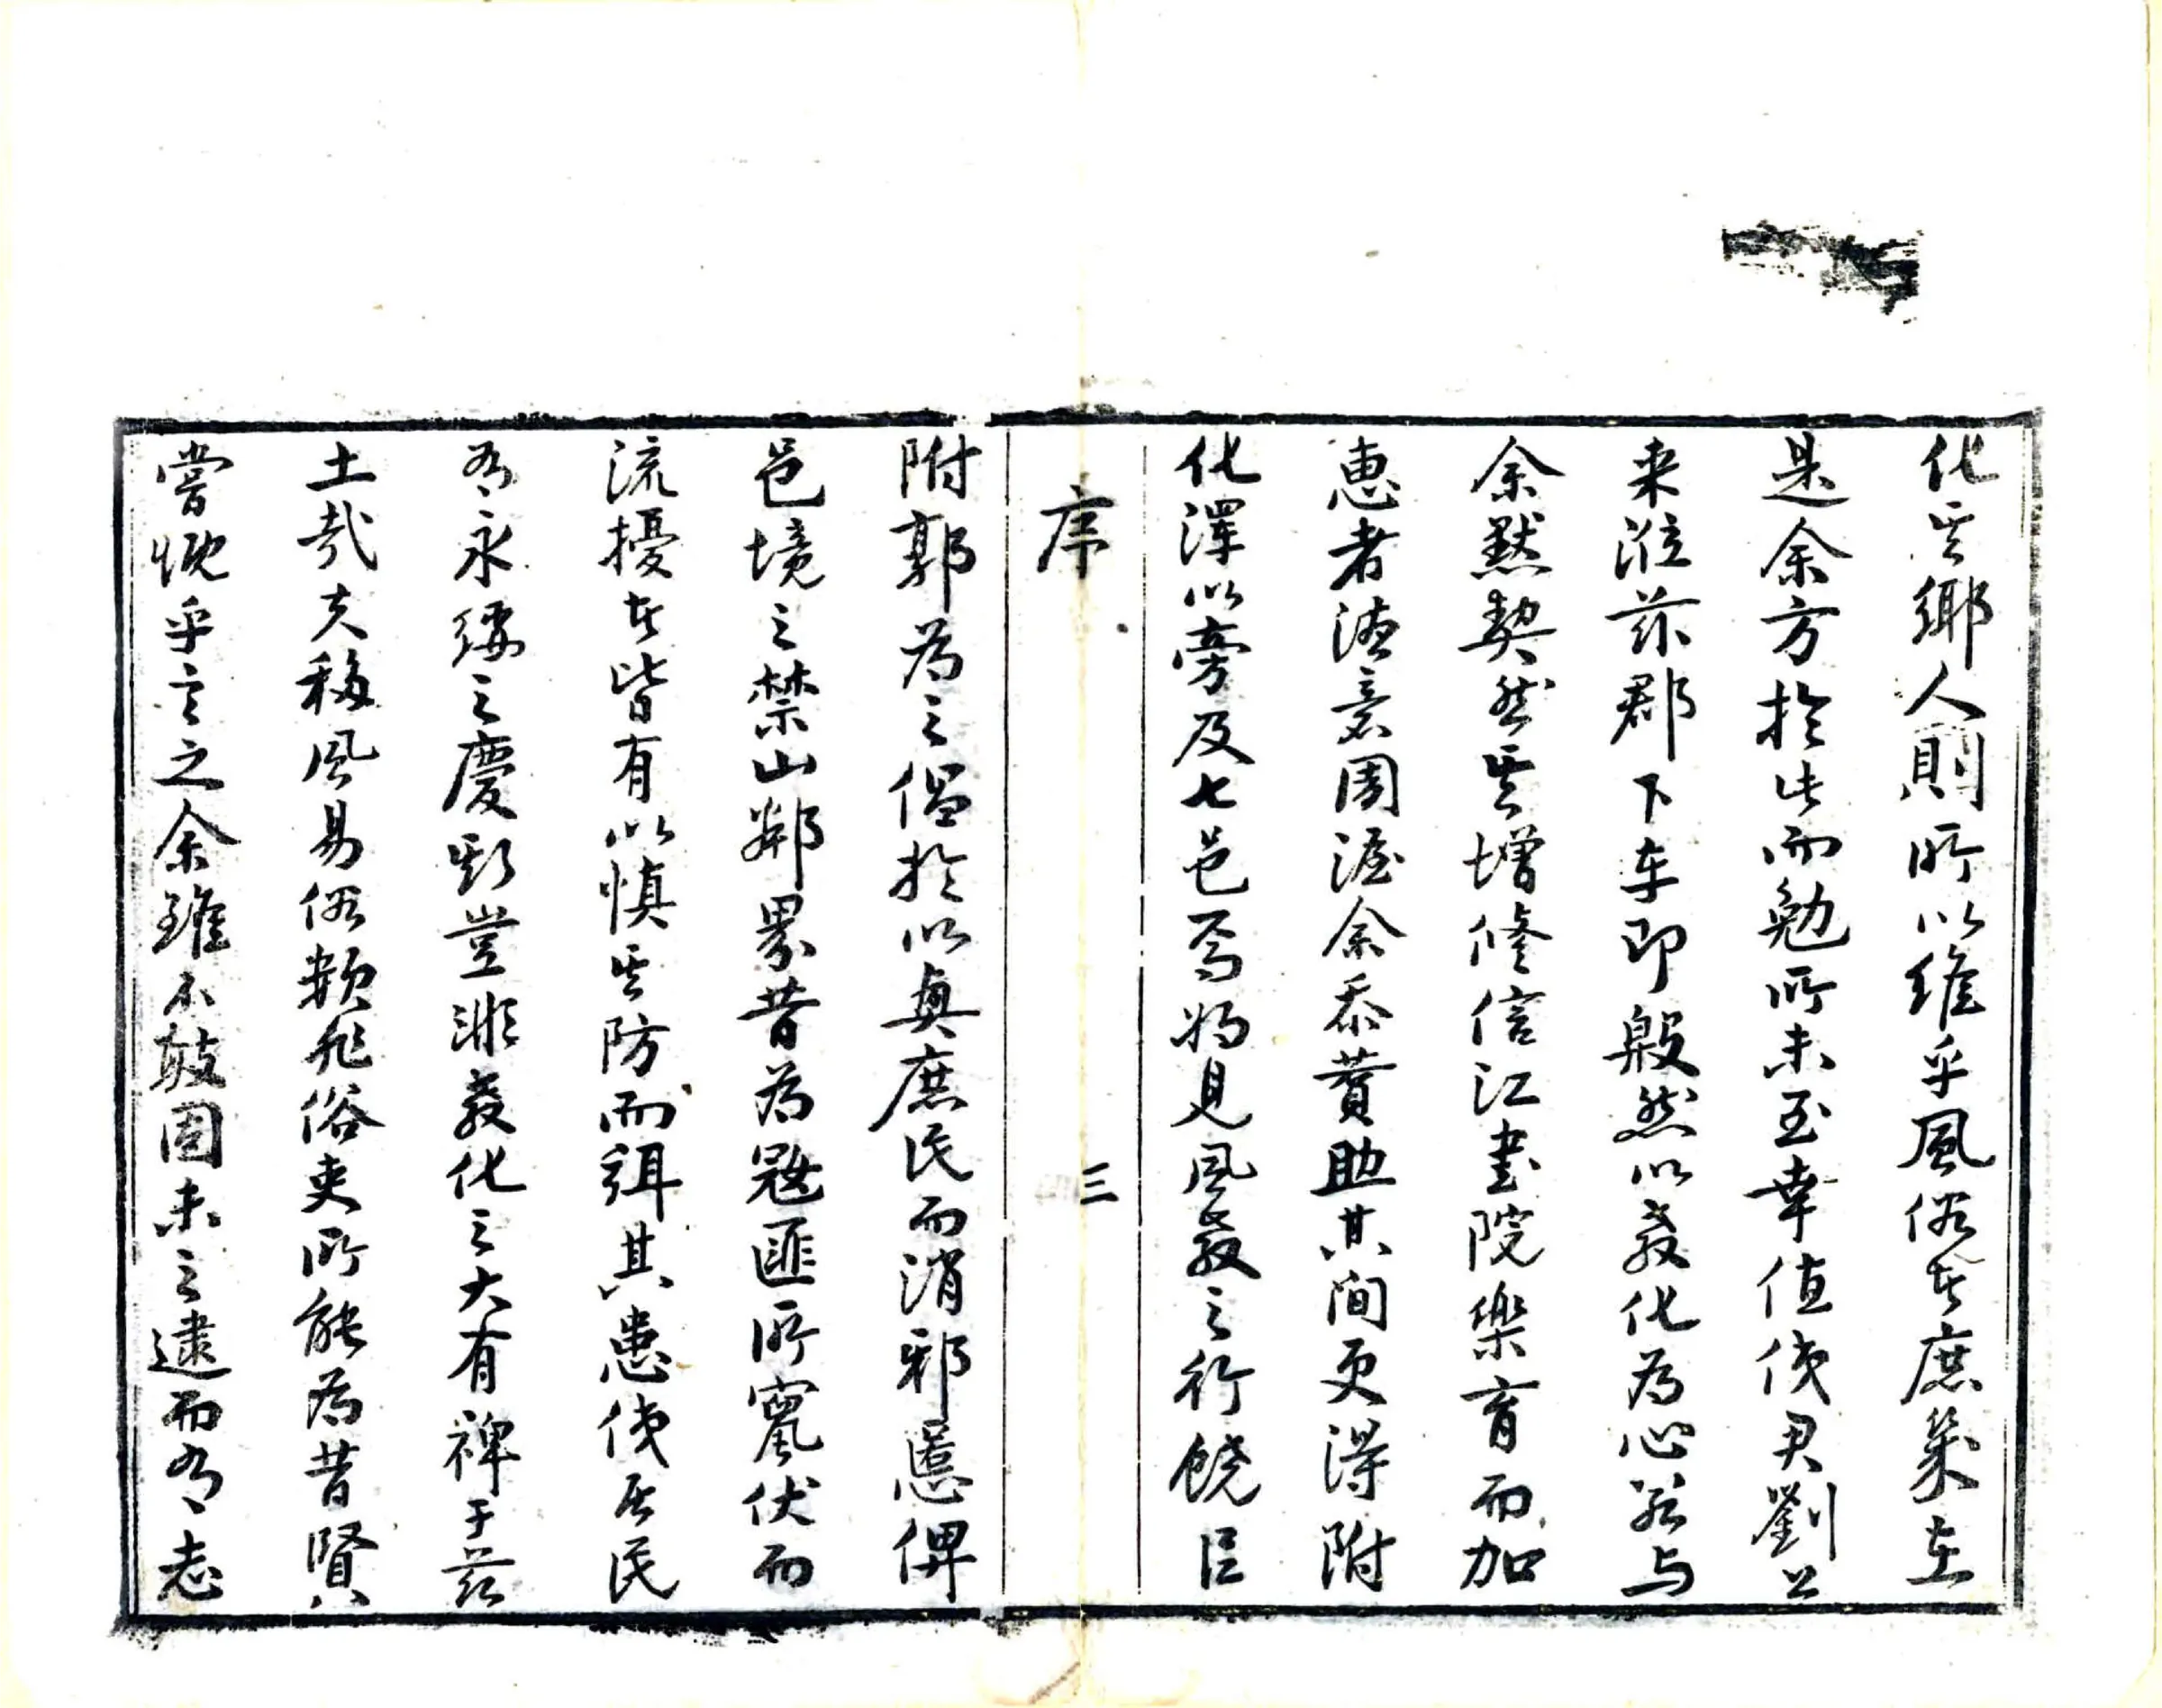 化其鄉人則所以維乎風俗者庶幾在
是余方於此而勉所未至幸值後君劉公
來涖茲郡下車即殷然以教化為心茲与
余默契然其增修信江書院樂育而加
惠者德意周渥余忝贊助其間更得附
化澤以旁及七邑焉將見風教之行饒巨
序
三
附郭為之倡於以奠庶民而消邪慝俾
邑境之禁山鄰界昔為寇匪所竄伏而
流擾者皆有以慎其防而弭其患使居民
有永綏之慶斯豈非教化之大有裨于茲
土哉夫移風易俗類非俗吏所能為昔賢
嘗慨乎言之余雖不敏固未之逮而有志